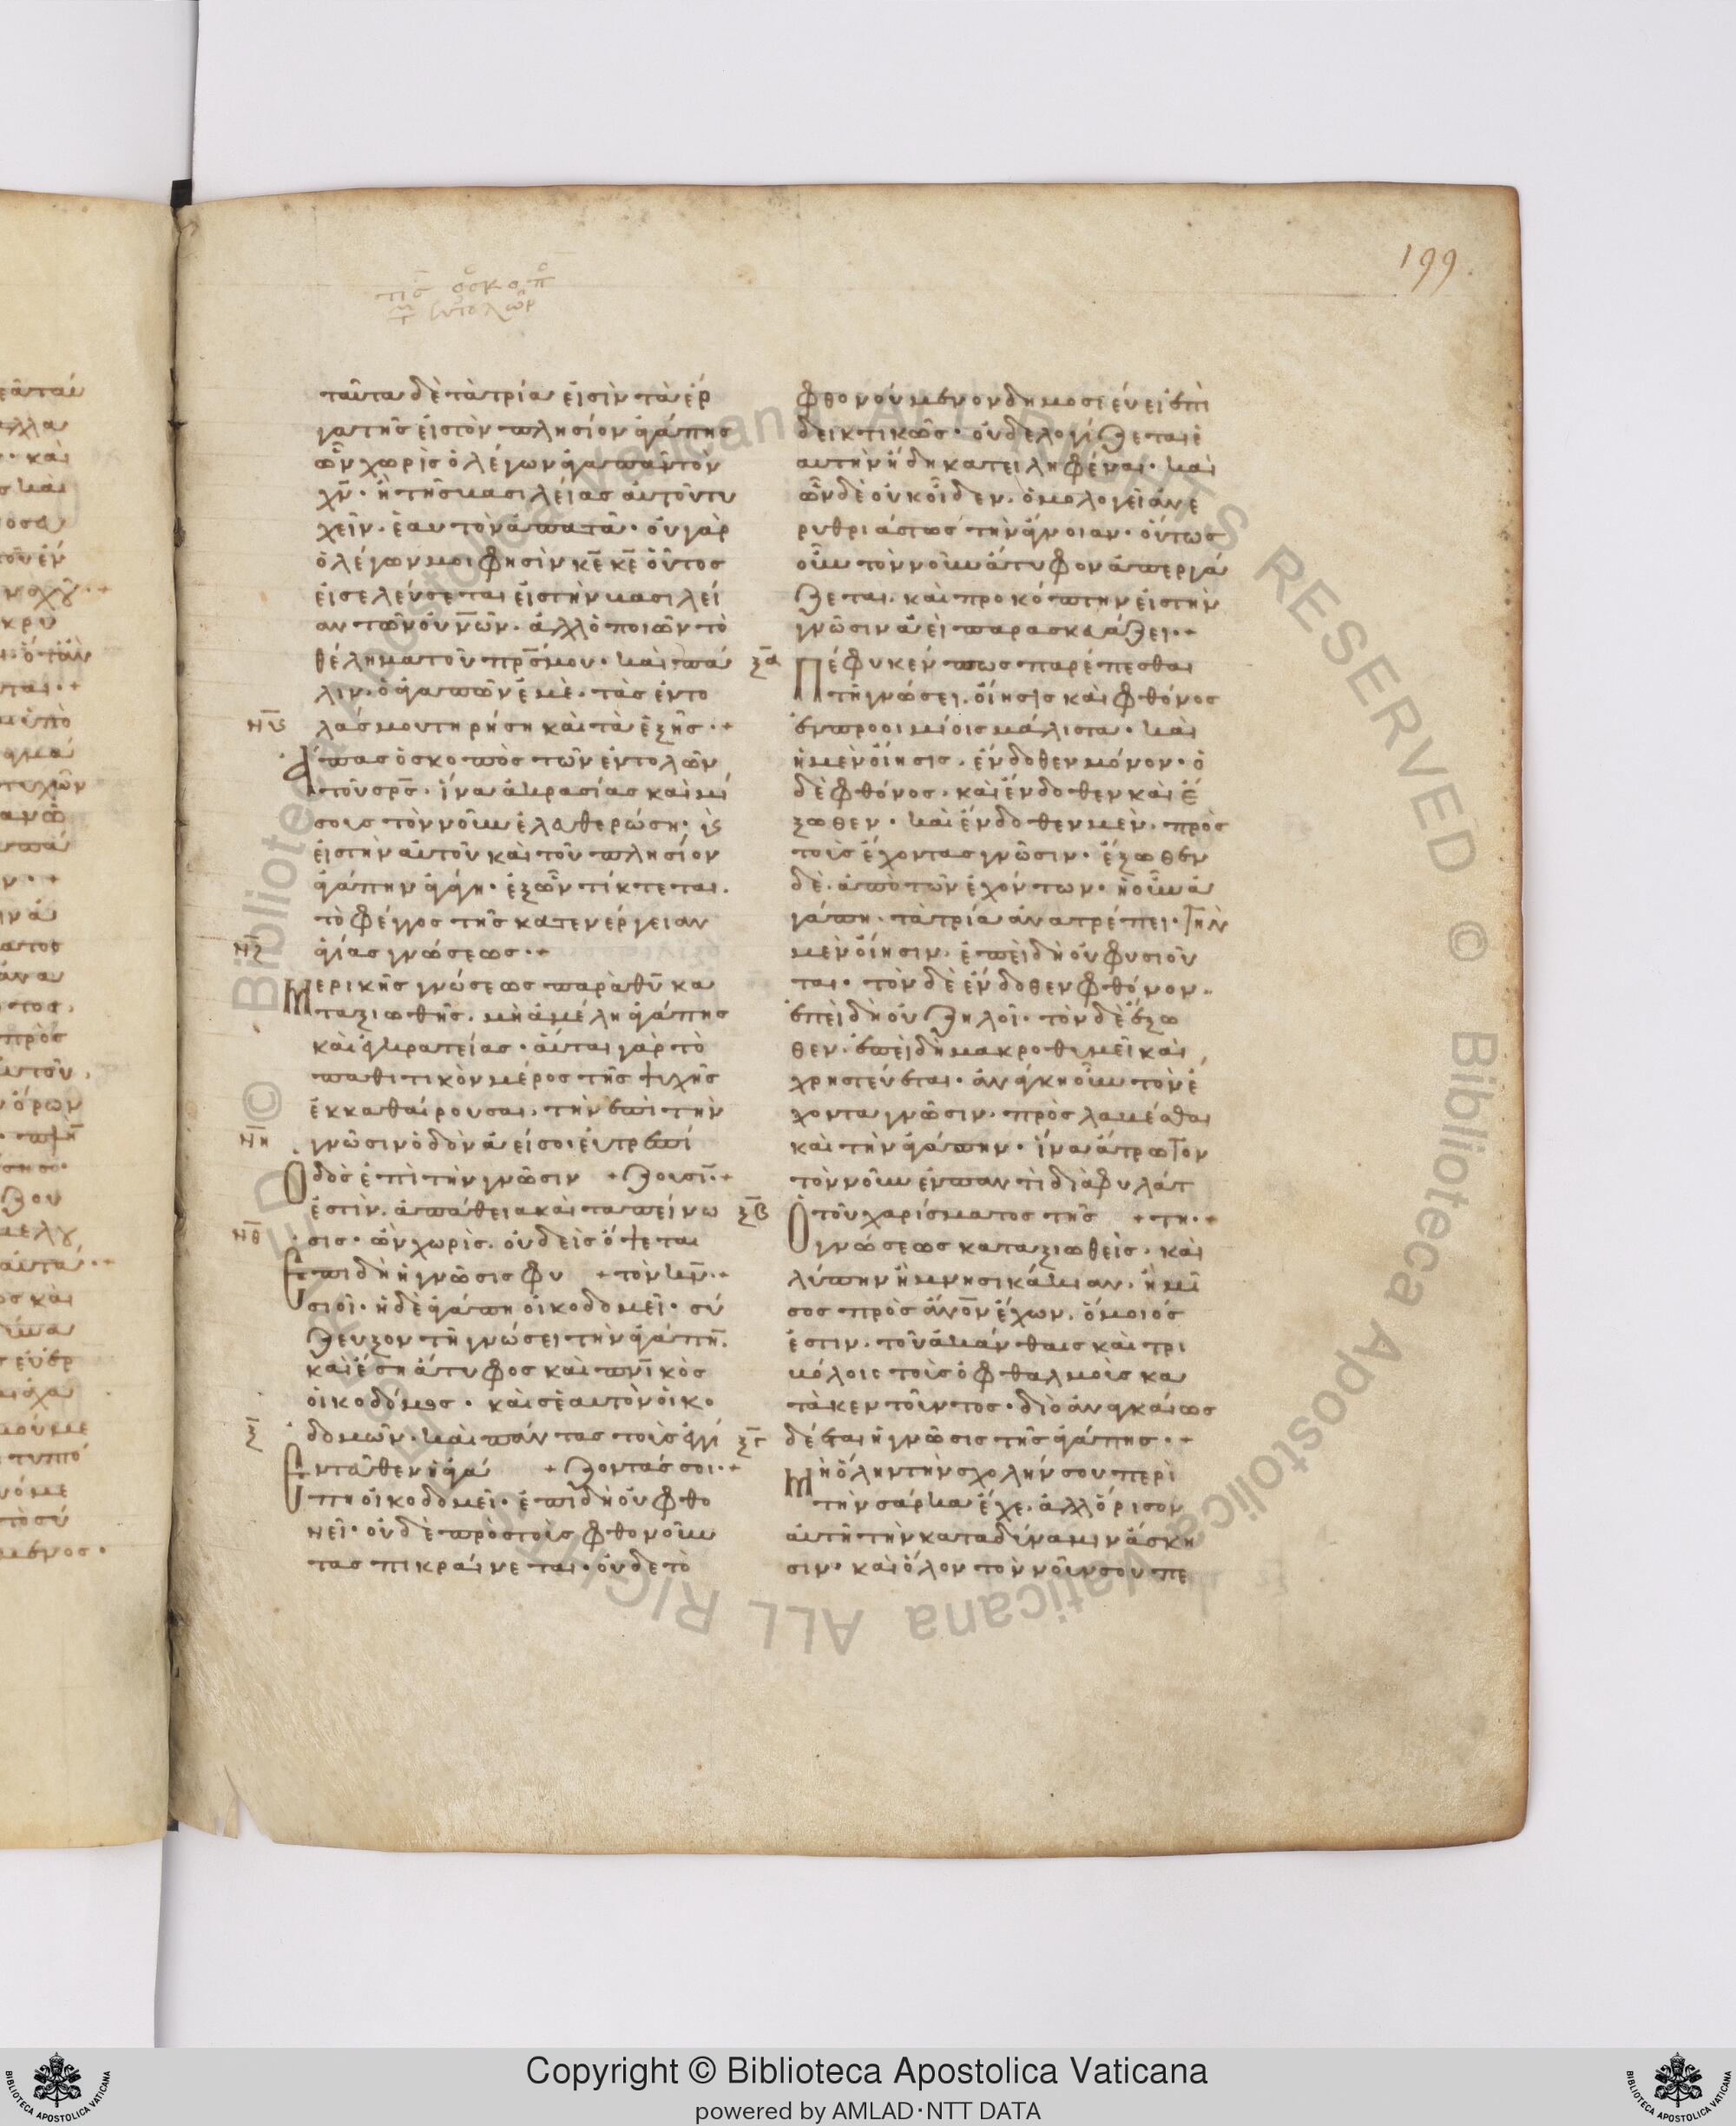 199.
ταῦτα δὲ τὰ τρία εἰσὶν τὰ ἔρ
γα τῆς εἰς τὸν πλησίον ἀγάπης
ὧν χωρὶς ὁ λέγων ἀγαπᾶν τὸν
χ̅ν̅· ἢ τῆς βασιλείας αὐτοῦ τυ
χεῖν. ἑαυτὸν ἀπατᾶ· οὐ γὰρ
ὁ λέγων μοι φησὶν κ̅ε̅ κ̅ε̅ οὗτος
εἰσελεύσεται εἰς τὴν βασιλεί
αν τῶν οὐν̅ῶν· ἀλλ ὁ ποιῶν τὸ
θέλημα τοῦ πρ̅ς μου· καὶ πά
λιν. ὁ ἀγαπῶν ἐμὲ. τὰς ἐντο
ν̅ς̅ λάς μου τηρήση καὶ τὰ ἑξῆς·+
ἅπας ὁ σκοπὸς τῶν ἐντολῶν
τοῦ σρ̅ς· ἵνα ἀκρασίας καὶ μί
σους τὸν νοῦν ἐλευθερώση·
εἰς τὴν αὐτοῦ καὶ τοῦ πλησίον
ἀγάπην ἀγάγη· ἐξ ὧν τίκτεται.
τὸ φέγγος τῆς κατενέργειαν
ν̅ζ̅ ἁγίας γνώσεως·+
Μερικῆς γνώσεως παρὰ θ̅υ̅ κα
ταξιωθῆς. μὴ ἀμέλη ἀγάπης
καὶ ἐγκρατείας· αὗται γὰρ τὸ
παθητικὸν μέρος τῆς ψυχῆς
ἐκκαθαίρουσαι. τὴν ἐπὶ τὴν
ν̅η̅ γνῶσιν ὁδὸν ἀεί σοι εὐτρεπί
Ὁδὸς ἐπὶ τὴν γνῶσιν +ζουσι̅·+
ἐστὶν. ἀπάθεια καὶ ταπείνω
ν̅θ̅ σις· ὧν χωρὶς. οὐδεὶς ὄψεται
Ἐπιδὴ ἡ γνῶσις φυ +τὸν κ̅ν̅·+
σιοῖ· ἡ δὲ ἀγάπη οἰκοδομεῖ· σύ
ζευξον τῆ γνώσει τὴν ἀγάπη̅.
καὶ ἔση ἄτυφος καὶ πνι̅κὸς
οἰκοδόμος· καὶ σὲ αὐτὸν οἰκο
ξ̅ δομῶν· καὶ πάντας τοὺς ἐγγί
Ἐντεῦθεν ἡ ἀγά +ζοντάς σοι·+
πη οἰκοδομεῖ· ἐπιδὴ οὐ φθο
νεῖ· οὐδὲ πρὸς τοὺς φθονοῦν
τας πικραίνεται· οὐδε τὸ
φθονούμενον δημοσιεύει ἐπι
δεικτικῶς· οὐδε λογίζεται ἑ
αυτὴν ἤδη κατειληφέναι· καὶ
ὧν δὲ οὐκ οἶδεν. ὁμολογεῖ ἀνε
ρυθριάστως τὴν ἄγνοιαν· οὕτως
οὖν τὸν νοῦν ἄτυφον ἀπεργά
ζεται. καὶ προκόπτην εἰς τὴν
γνῶσιν ἀεὶ παρασκευάζει·+
ξ̅α̅ Πέφυκέν πως παρέπεσθαι
τῆ γνώσει. οἴησις καὶ φθόνος
ἐν προοιμίοις μάλιστα· καὶ
ἡ μὲν οἴησις. ἔνδοθεν μόνον· ὁ
δὲ φθόνος. καὶ ἔνδοθεν καὶ ἔ
ξωθεν· καὶ ἔνδοθεν μὲν. πρὸς
τοὺς ἔχοντας γνῶσιν· ἔξωθεν
δὲ. ἀπὸ τῶν ἐχόντων· ἡ οὖν ἀ
γάπη. τὰ τρία ἀνατρέπει· τὴν
μὲν οἴησιν. ἐπειδὴ οὐ φυσιοῦ
ται· τὸν δὲ ἔνδοθεν φθόνον..
ἐπειδὴ οὐ ζηλοῖ· τὸν δὲ ἔξω
θεν. ἐπειδὴ μακροθυμεῖ καὶ
χρηστεύεται· ἀνάγκη οὖν τὸν ἔ
χοντα γνῶσιν. πρὸς λαβέσθαι
καὶ τὴν ἀγάπην· ἵνα ἄτρωτον
τὸν νοῦν ἐν παντὶ διαφυλάτ
ξ̅β̅ Ὁ τοῦ χαρίσματος τῆς +τη·+
γνώσεως καταξιωθεὶς· καὶ
λύπην ἢ μνησικακίαν. ἢ μῖ
σος πρὸς ἀν̅ο̅ν ἔχων. ὅμοιός
ἐστιν. τοῦ ἀκάνθαις καὶ τρι
βόλοις τοὺς ὀφθαλμοὺς κα
τὰ κεντοῦντος· διὸ ἀναγκαίως
ξ̅γ̅ δέεται ἡ γνῶσις τῆς ἀγάπης·+
Μὴ ὅλην τὴν σχολήν σου περὶ
τὴν σάρκα ἔχε. ἀλλ ὅρισον
αὐτῆ τὴν κατα δύναμιν ἄσκη
σιν· καὶ ὅλον τὸν νοῦν σου πε
Copyright © Biblioteca Apostolica Vaticana
powered by AMLAD·NTT DATA